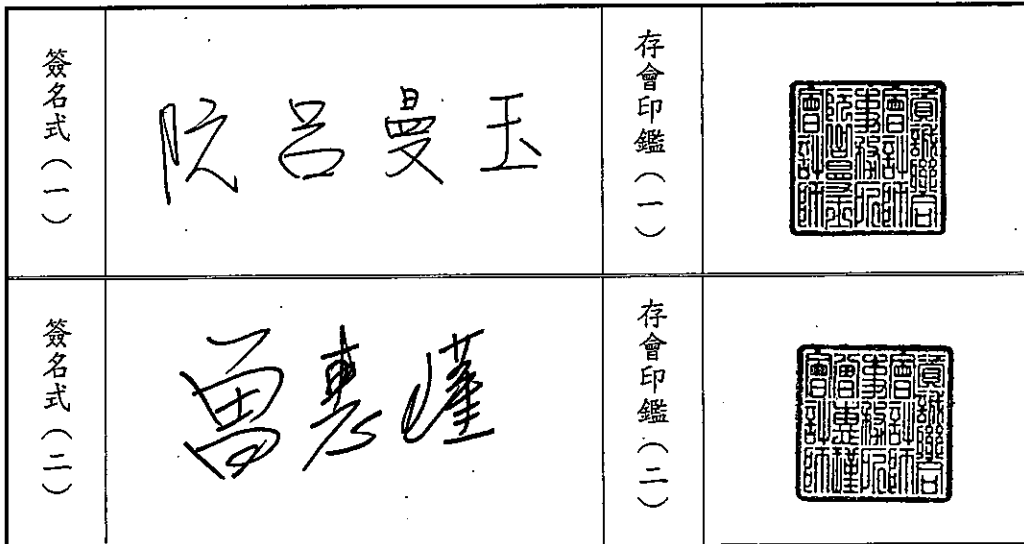 簽名式（一）
阮呂曼玉
存會印鑑（一）
資誠聯合
會計師
事務所
阮呂曼玉
會計師
簽名式（二）
曾惠瑾
存會印鑑（二）
資誠聯合
會計師
事務所
曾惠瑾
會計師